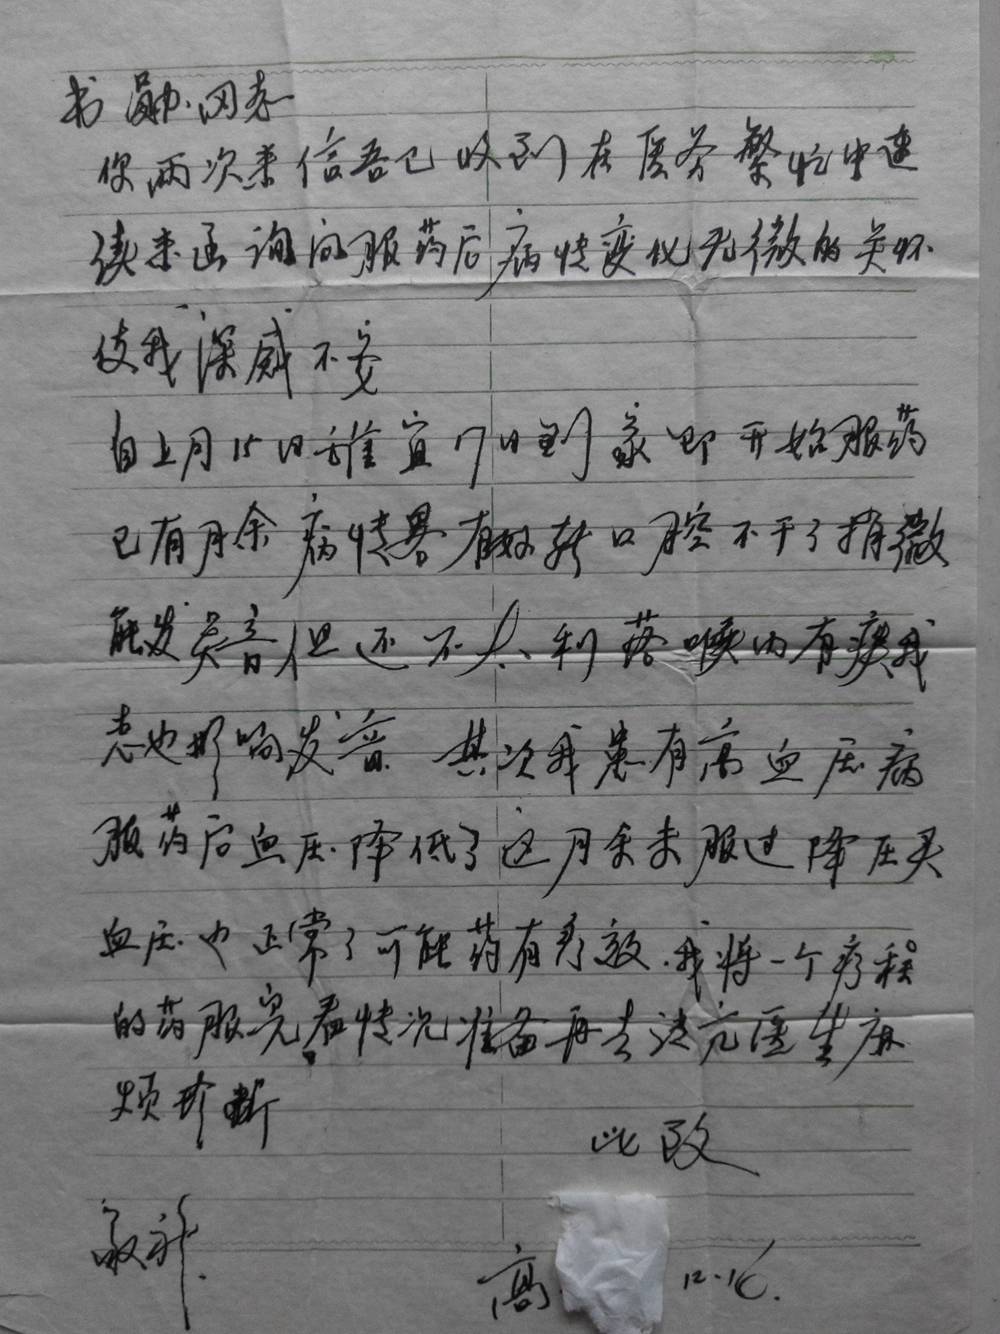 书勋同志
你两次来信吾已收到在医务繁忙中连
续来函询问服药后病情变化无微的关怀
使我深感不安
自上月15日离宜17日到家即开始服药
已有月余病情略有好转口腔不干了稍微
能发点音但还不太利落喉内有痰我
患也影响发音 其次我患有高血压病
服药后血压降低了这月余未服过降压灵
血压也正常了可能药有疗效.我将一个疗程
的药服完看情况准备再去请亢医生麻
烦珍断
此致
敬礼.
高 12.16.